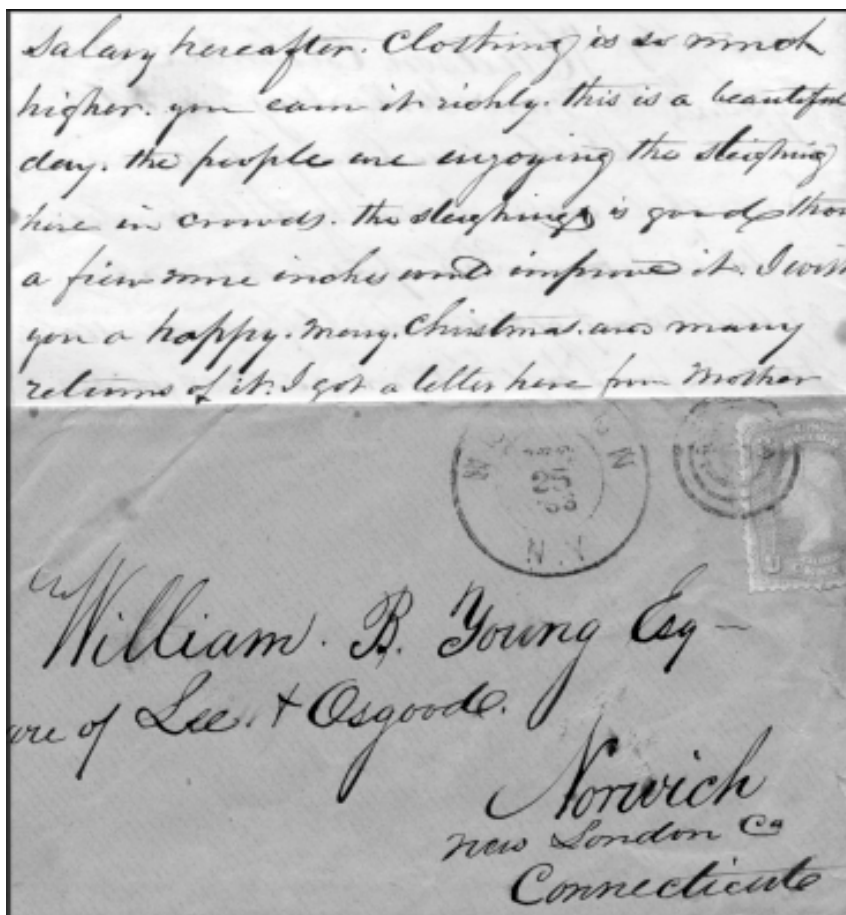 Salary hereafter. Clothing is so much
higher. you earn it richly. this is a beautiful
day. the people are enjoying the sleighing
here in crowds. the sleighing is good thou
a fiew more inches would improve it. I wish
you a happy. merry. Christmas. and many
returns of it. I got a letter here from Mother
N.Y.
William. B. Young Esq
are of Lee. & Osgood.
Norwich
New London Co
Connecticut